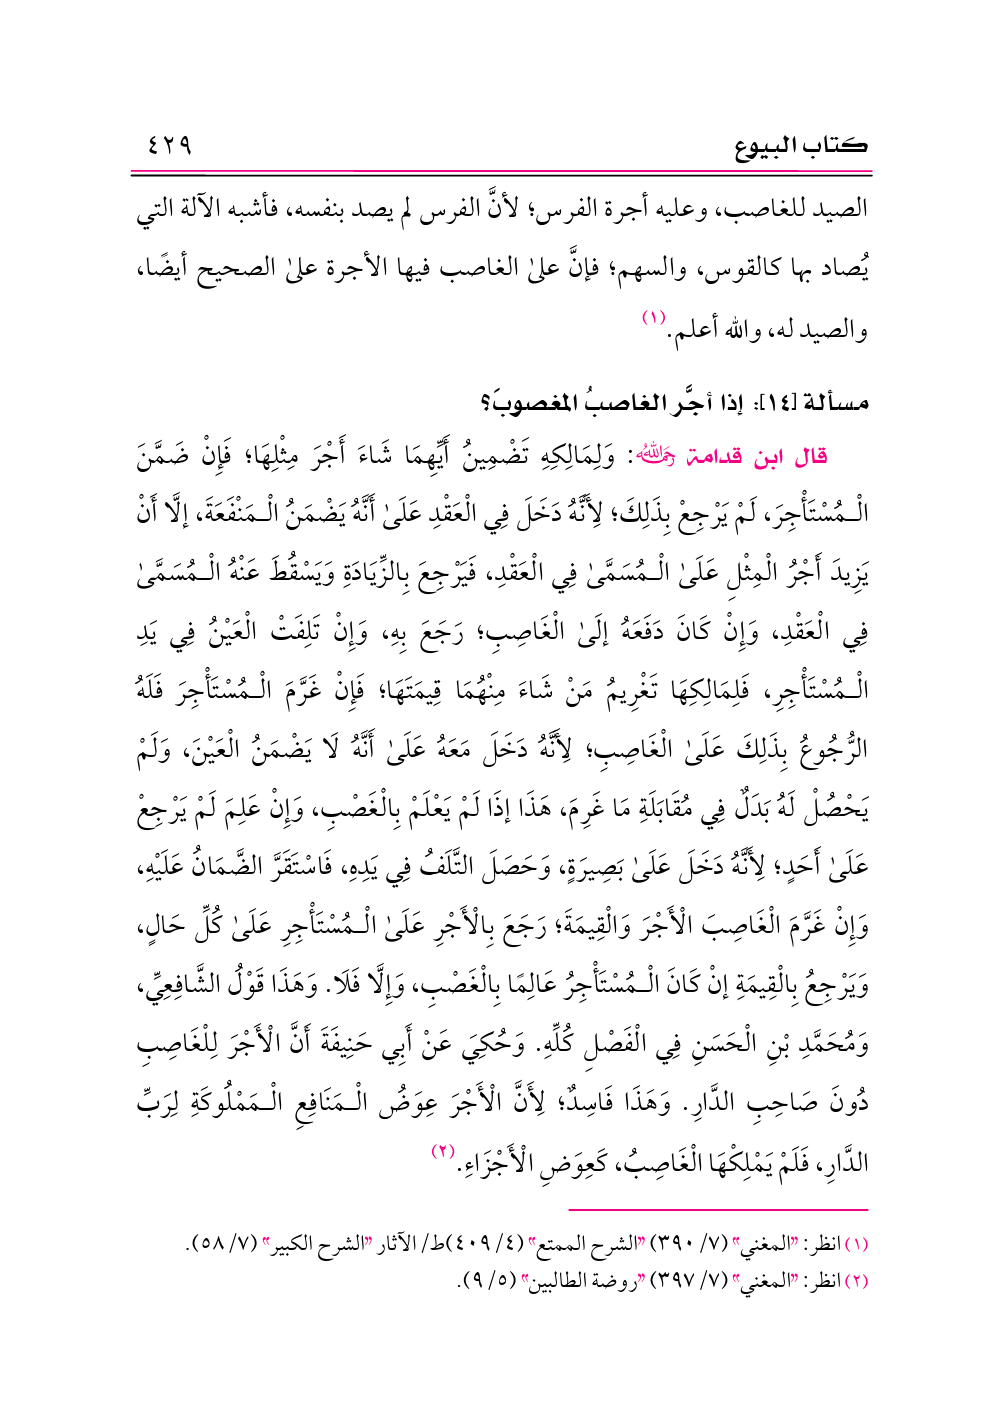 كتاب البيوع ٤٢٩
الصيد للغاصب، وعليه أجرة الفرس؛ لأنَّ الفرس لم يصد بنفسه، فأشبه الآلة التي
يُصاد بها كالقوس، والسهم؛ فإنَّ علىٰ الغاصب فيها الأجرة علىٰ الصحيح أيضًا،
والصيد له، والله أعلم.(١)
مسألة [١٤]: إذا أجَّر الغاصبُ المغصوبَ؟
قال ابن قدامة رحمه الله: وَلِمَالِكِهِ تَضْمِينُ أَيِّهِمَا شَاءَ أَجْرَ مِثْلِهَا؛ فَإِنْ ضَمَّنَ
الْـمُسْتَأْجِرَ، لَمْ يَرْجِعْ بِذَلِكَ؛ لِأَنَّهُ دَخَلَ فِي الْعَقْدِ عَلَىٰ أَنَّهُ يَضْمَنُ الْـمَنْفَعَةَ، إلَّا أَنْ
يَزِيدَ أَجْرُ الْمِثْلِ عَلَىٰ الْـمُسَمَّىٰ فِي الْعَقْدِ، فَيَرْجِعَ بِالزِّيَادَةِ وَيَسْقُطَ عَنْهُ الْـمُسَمَّىٰ
فِي الْعَقْدِ، وَإِنْ كَانَ دَفَعَهُ إلَىٰ الْغَاصِبِ؛ رَجَعَ بِهِ، وَإِنْ تَلِفَتْ الْعَيْنُ فِي يَدِ
الْـمُسْتَأْجِرِ، فَلِمَالِكِهَا تَغْرِيمُ مَنْ شَاءَ مِنْهُمَا قِيمَتَهَا؛ فَإِنْ غَرَّمَ الْـمُسْتَأْجِرَ فَلَهُ
الرُّجُوعُ بِذَلِكَ عَلَىٰ الْغَاصِبِ؛ لِأَنَّهُ دَخَلَ مَعَهُ عَلَىٰ أَنَّهُ لَا يَضْمَنُ الْعَيْنَ، وَلَمْ
يَحْصُلْ لَهُ بَدَلٌ فِي مُقَابَلَةِ مَا غَرِمَ، هَذَا إذَا لَمْ يَعْلَمْ بِالْغَصْبِ، وَإِنْ عَلِمَ لَمْ يَرْجِعْ
عَلَىٰ أَحَدٍ؛ لِأَنَّهُ دَخَلَ عَلَىٰ بَصِيرَةٍ، وَحَصَلَ التَّلَفُ فِي يَدِهِ، فَاسْتَقَرَّ الضَّمَانُ عَلَيْهِ،
وَإِنْ غَرَّمَ الْغَاصِبَ الْأَجْرَ وَالْقِيمَةَ؛ رَجَعَ بِالْأَجْرِ عَلَىٰ الْـمُسْتَأْجِرِ عَلَىٰ كُلِّ حَالٍ،
وَيَرْجِعُ بِالْقِيمَةِ إنْ كَانَ الْـمُسْتَأْجِرُ عَالِمًا بِالْغَصْبِ، وَإِلَّا فَلَا. وَهَذَا قَوْلُ الشَّافِعِيِّ،
وَمُحَمَّدِ بْنِ الْحَسَنِ فِي الْفَصْلِ كُلِّهِ. وَحُكِيَ عَنْ أَبِي حَنِيفَةَ أَنَّ الْأَجْرَ لِلْغَاصِبِ
دُونَ صَاحِبِ الدَّارِ. وَهَذَا فَاسِدٌ؛ لِأَنَّ الْأَجْرَ عِوَضُ الْـمَنَافِعِ الْـمَمْلُوكَةِ لِرَبِّ
الدَّارِ، فَلَمْ يَمْلِكْهَا الْغَاصِبُ، كَعِوَضِ الْأَجْزَاءِ.(٢)
(١) انظر: "المغني" (٧/ ٣٩٠) "الشرح الممتع" (٤/ ٤٠٩)ط/ الآثار "الشرح الكبير" (٧/ ٥٨).
(٢) انظر: "المغني" (٧/ ٣٩٧) "روضة الطالبين" (٥/ ٩).